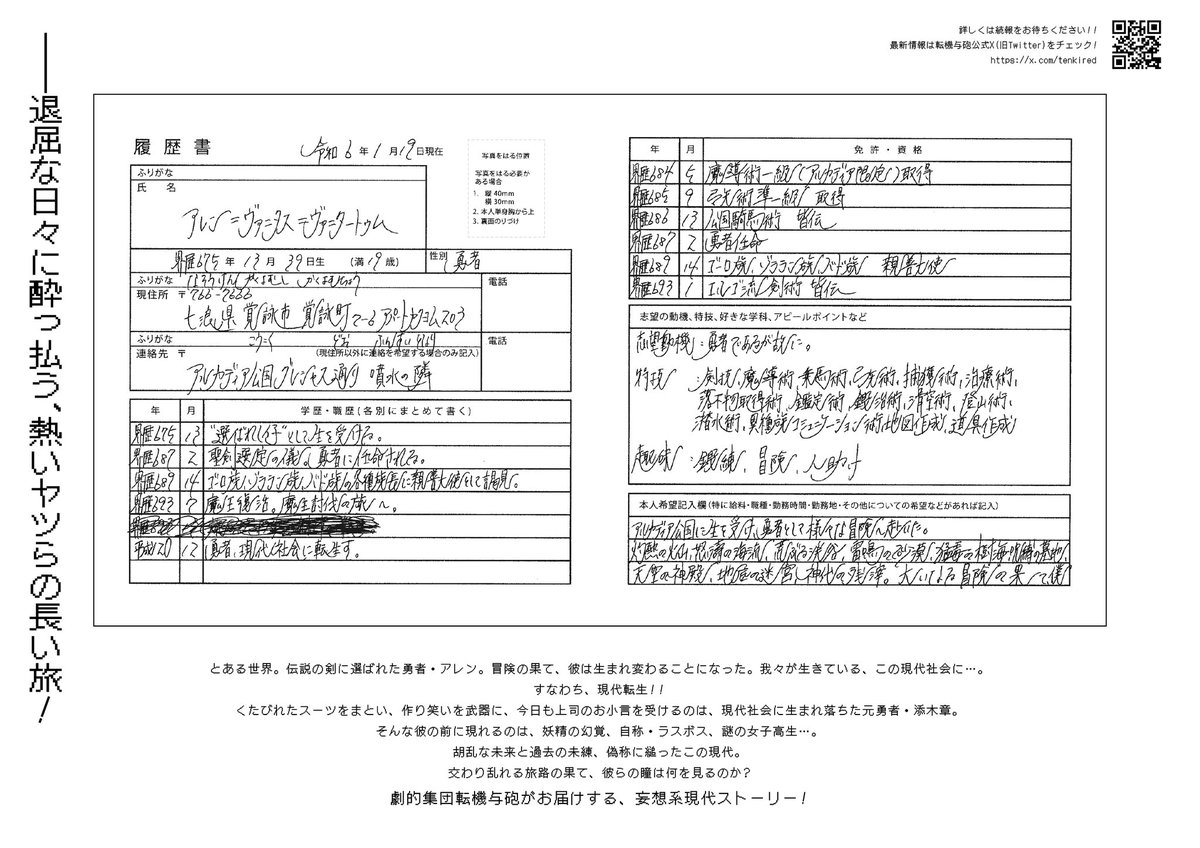 詳しくは続報をお待ちください!!
最新情報は転機与砲公式X(旧Twitter)をチェック!
https://x.com/tenkired
――退屈な日々に酔っ払う、熱いヤツらの長い旅!
履歴書
令和6年1月19日現在
写真をはる位置
写真をはる必要が
ある場合
1. 縦 40mm
横 30mm
2. 本人単身胸から上
3. 裏面のりづけ
ふりがな
氏 名
アレン=ヴァニタス=ヴァニタートゥム
界歴675年 13月 39日生 (満19歳)
性別 勇者
ふりがな
電話
現住所 〒766-7666
七浪県 覚詠市 覚詠町
ふりがな
電話
連絡先 〒 (現住所以外に連絡を希望する場合のみ記入)
アルカディア公国 グレンジャス通り 噴水の隣
年 月 学歴・職歴(各別にまとめて書く)
界歴675 13 "選ばれし子"として生を受ける。
界歴687 2 聖剣選定の儀、勇者に任命される。
界歴689 14 ゴロ族、ゾララン族、バド族の各種族長に親善大使として謁見。
界歴693 7 魔王復活。魔王討伐の旅へ。
平成20 12 勇者、現代社会に転生す。
年 月 免許・資格
界歴684 5 魔導術一級(アルカディア限定)取得
界歴685 9 弓光術準一級 取得
界歴686 13 公国騎馬術 皆伝
界歴687 2 勇者任命
界歴689 14 ゴロ族、ゾララン族、バド族 親善大使
界歴693 1 エルゴ流剣術 皆伝
志望の動機、特技、好きな学科、アピールポイントなど
志望動機:勇者であるが故に。
特技:剣技、魔導術、乗馬術、弓光術、捕獲術、治療術、
落下物取得術、鑑定術、鍛冶術、滑空術、登山術、
潜水術、異種族コミュニケーション術、地図作成、道具作成
趣味:鍛練、冒険、人助け
本人希望記入欄(特に給料・職種・勤務時間・勤務地・その他についての希望などがあれば記入)
アルカディア公国に生を受け、勇者として様々な冒険へ赴いた。
灼熱の火山、怒濤の海流、荒ぶる渓谷、雷鳴の砂漠、猛毒の樹海、呪縛の墓地、
天空の神殿、地底の迷宮、神代の残滓。"大いなる冒険"の果て、僕
とある世界。伝説の剣に選ばれた勇者・アレン。冒険の果て、彼は生まれ変わることになった。我々が生きている、この現代社会に…。
すなわち、現代転生!!
くたびれたスーツをまとい、作り笑いを武器に、今日も上司のお小言を受けるのは、現代社会に生まれ落ちた元勇者・添木章。
そんな彼の前に現れるのは、妖精の幻覚、自称・ラスボス、謎の女子高生…。
胡乱な未来と過去の未練、偽称に縋ったこの現代。
交わり乱れる旅路の果て、彼らの瞳は何を見るのか?
劇的集団転機与砲がお届けする、妄想系現代ストーリー!